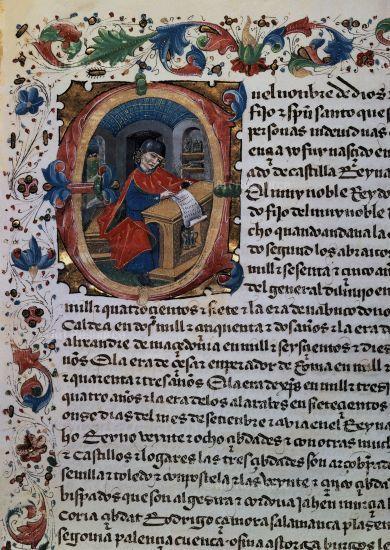 nel nonbre de dios
fijo & spũ santo que s
personas indeuiduas
cuya
ado de castilla Reyna
El muy noble Rey do
do fijo del muy noble
quando andaua la
do segund los abrayco
mill & sesenta & çinco a
del general diluuio en
mill & quatroçientos & siete & la era de nabucodono
Caldea en dos mill & çinquenta & dos años & la era
alixandre de maçedonia en mill & seysçientos & dies
nos & la era de çesar enperador de Roma en mill &
& quarenta & tres años & la era de xp̃s en mill & tres
quatro años & la era de los alaraues en sieteçientos
onze dias del mes de setienbre & auia en el Reyna
ho Regno veynte & ocho çibdades & con otras much
& Castillos & logares las tres çibdades son arçobispa
seuilla & toledo & conpostela & las veynte & çinco çibda
bispados que son algezira & cordoua jahen murçia
Coria çibdat Rodrigo çamora salamanca plasen
segouia palençia cuenca osma astorga burgos lo